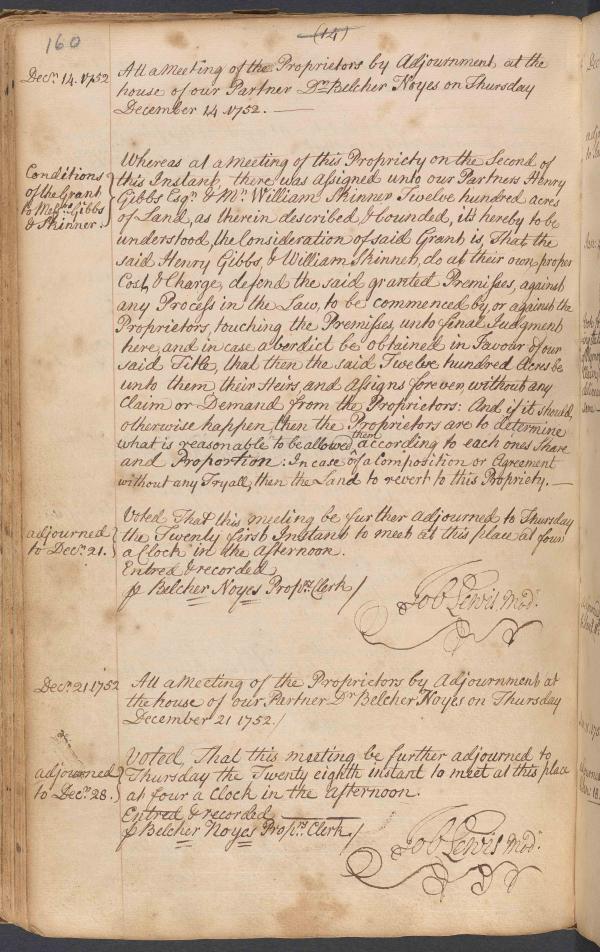 160
(14)
Decr. 14. 1752
Att a Meeting of the Proprietors by Adjournment at the
house of our Partner Dr. Belcher Noyes on Thursday
December 14. 1752.
Conditions
of the Grant
to Messrs. Gibbs
& Skinner.
Whereas at a Meeting of this Propriety on the Second of
this Instant, there was assigned unto our Partners Henry
Gibbs Esqr. & Mr. William Skinner Twelve hundred acres
of Land, as therein described & bounded, its hereby to be
understood, the Consideration of said Grant is, That the
said Henry Gibbs, & William Skinner, do at their own proper
Cost, & Charge, defend the said granted Premisses, against
any Process in the Law, to be commenced by, or against the
Proprietors, touching the Premisses, unto final Judgment
here, and in case a verdict be obtained in Favour of our
said Title, that then the said Twelve hundred Acres be
unto them their Heirs, and Assigns forever, without any
Claim or Demand from the Proprietors: And if it should,
otherwise happen, then the Proprietors are to determine
what is reasonable to be allowed them according to each ones Share
and Proportion: In case of a Composition or Agreement
without any Tryall, then the Land to revert to this Propriety.
adjourned
to Decr. 21.
Voted That this meeting be further adjourned to Thursday
the Twenty first Instant to meet at this place at four
a Clock in the afternoon.
Entred & recorded
⅌ Belcher Noyes Proprs. Clerk /
Job Lewis Modr.
Decr. 21 1752
Att a Meeting of the Proprietors by Adjournment at
the house of our Partner Dr. Belcher Noyes on Thursday
December 21 1752. /
adjourned
to Decr. 28.
Voted, That this meeting be further adjourned to
Thursday the Twenty eighth instant to meet at this place
at four a Clock in the afternoon.
Entred & recorded
⅌ Belcher Noyes Proprs. Clerk /
Job Lewis Modr.